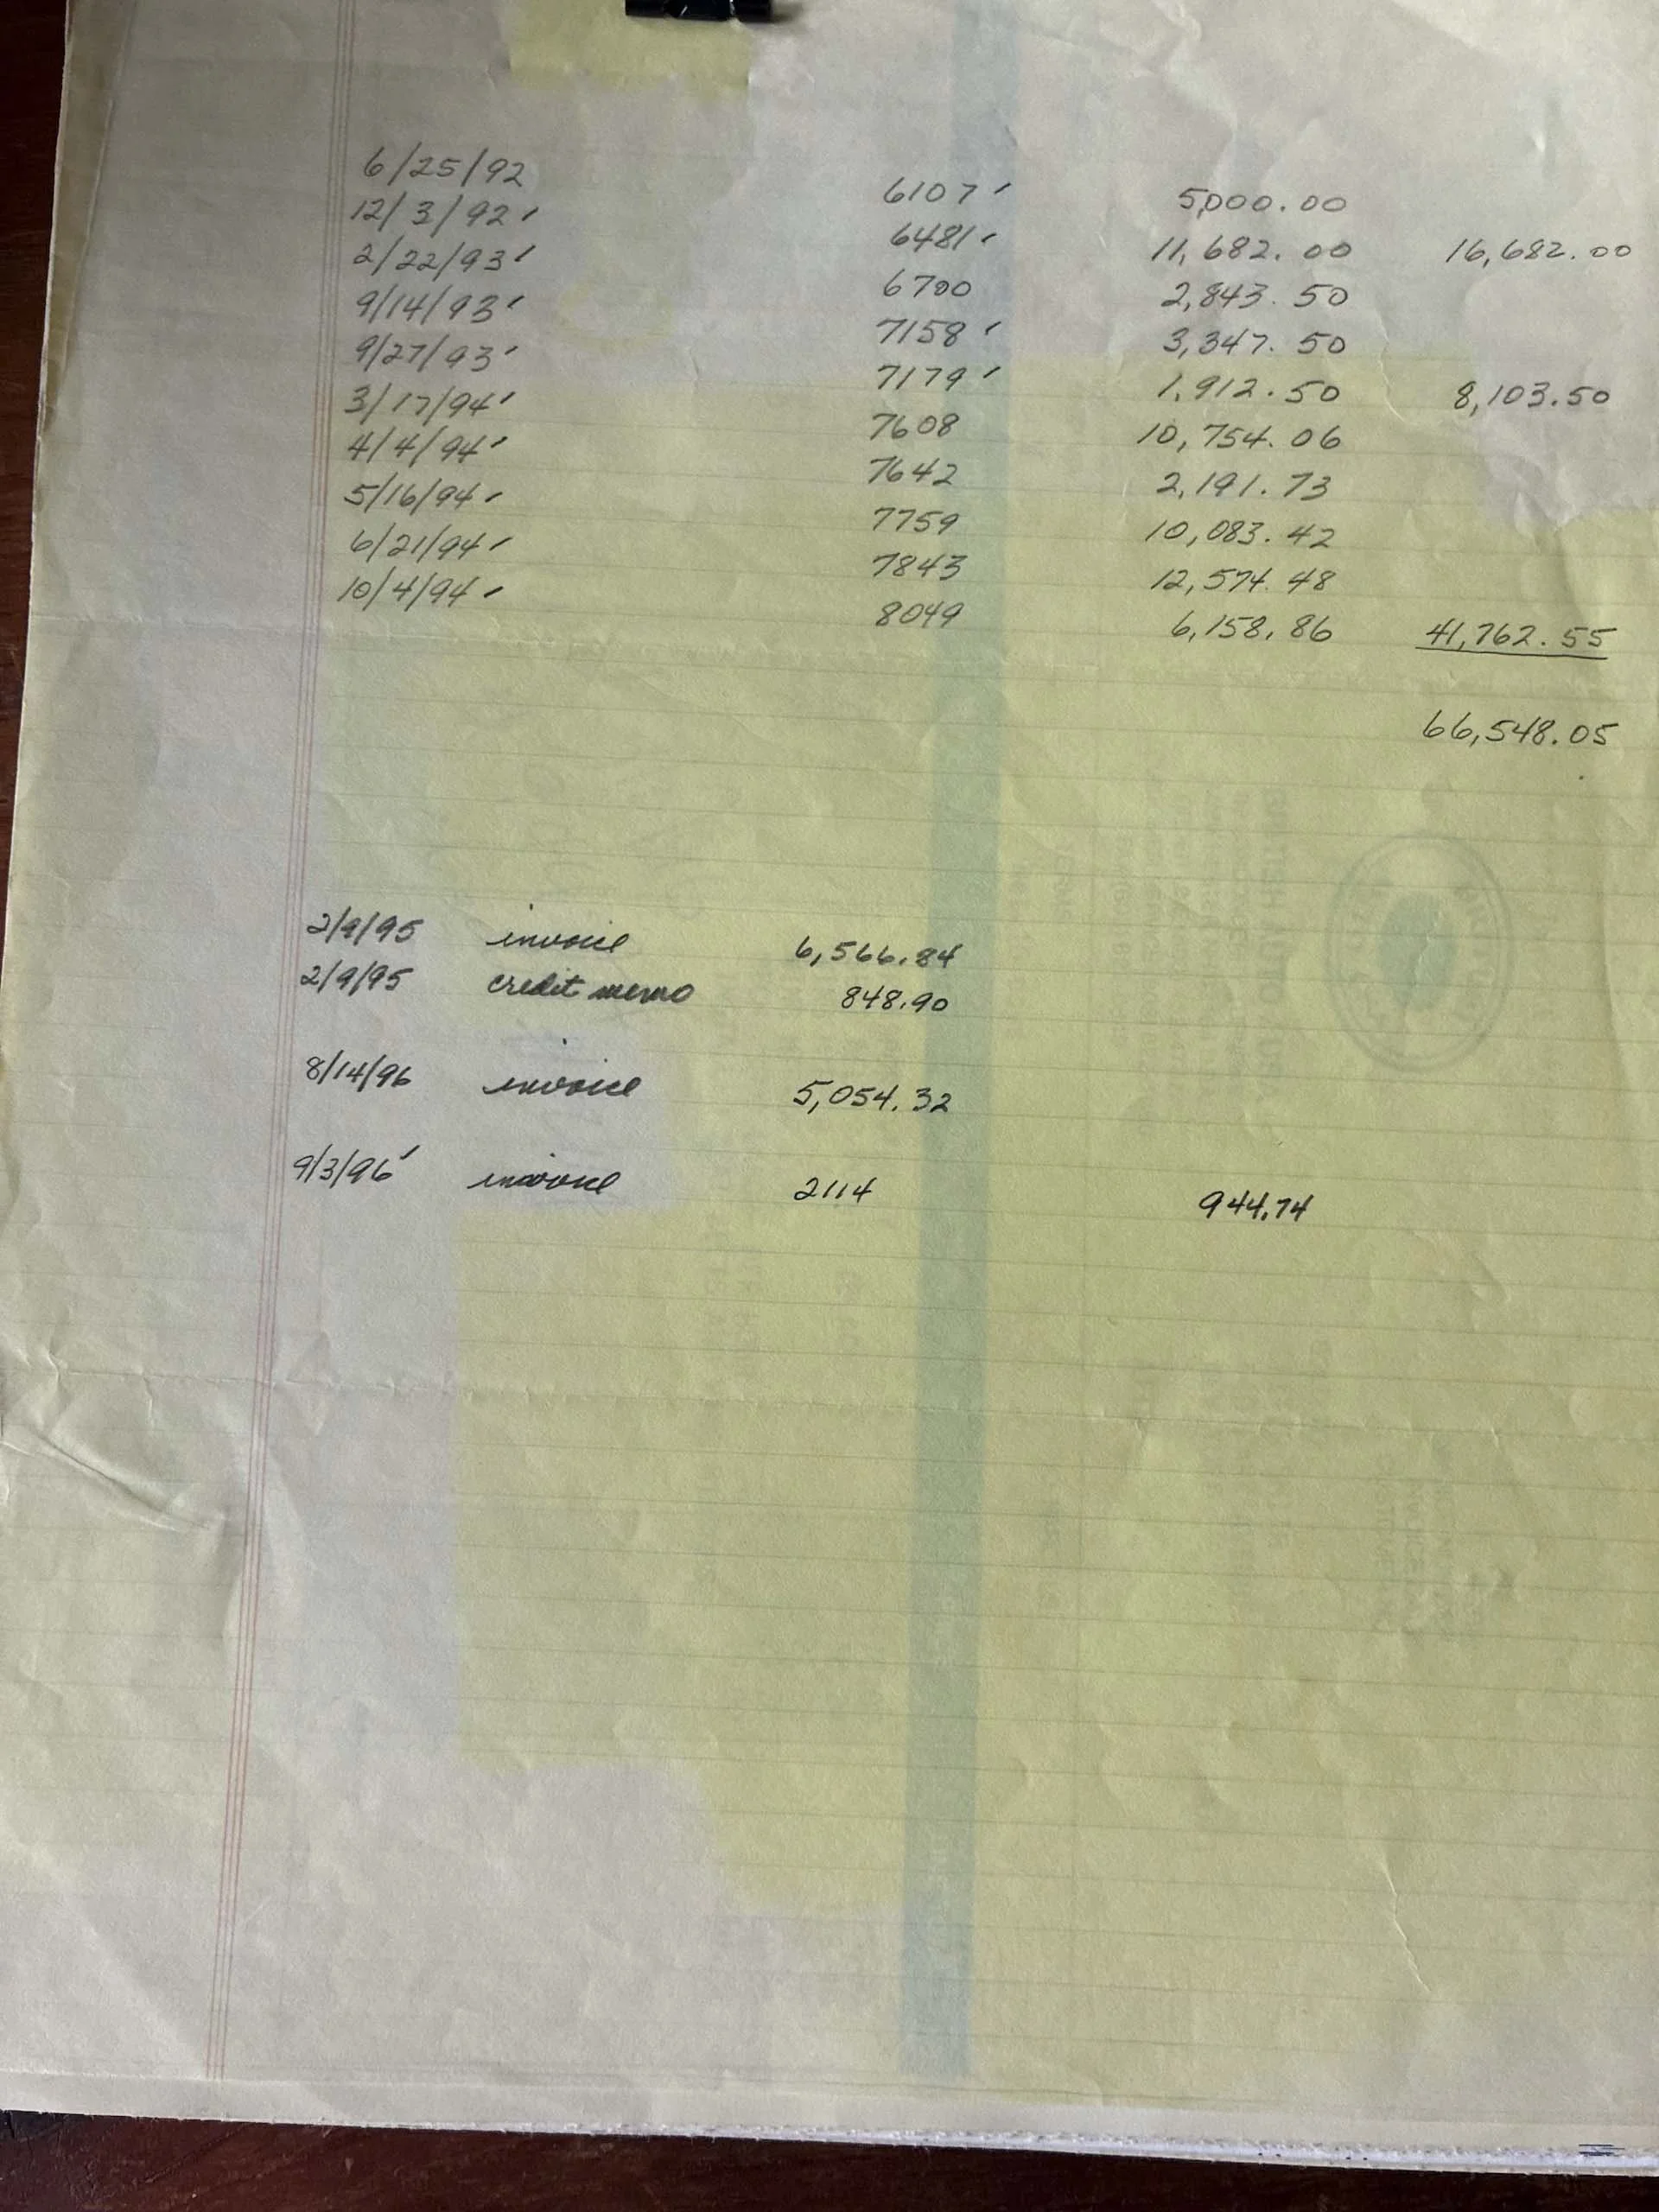 6/25/92 6107 ✓ 5,000.00
12/3/92 ✓ 6481 ✓ 11,682.00 16,682.00
2/22/93 ✓ 6700 2,843.50
9/14/93 ✓ 7158 ✓ 3,347.50
9/27/93 ✓ 7179 ✓ 1,912.50 8,103.50
3/17/94 ✓ 7608 10,754.06
4/4/94 ✓ 7642 2,191.73
5/16/94 ✓ 7759 10,083.42
6/21/94 ✓ 7843 12,574.48
10/4/94 ✓ 8049 6,158.86 41,762.55
66,548.05
2/9/95 invoice 6,566.84
2/9/95 credit memo 848.90
8/14/96 invoice 5,054.32
9/3/96 ✓ invoice 2114 944.74